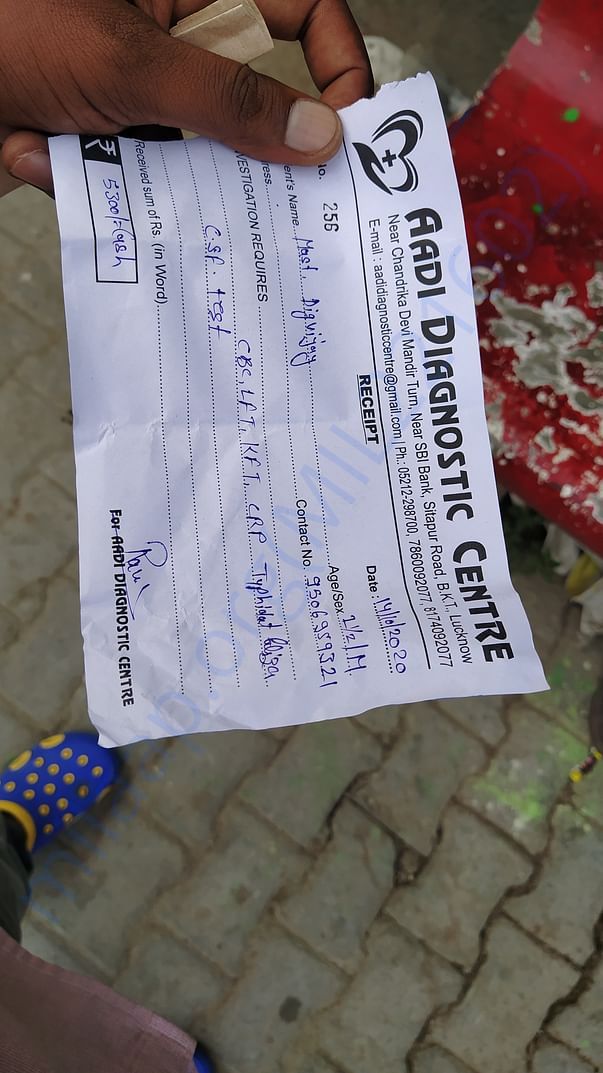 AADI DIAGNOSTIC CENTRE
Near Chandrika Devi Mandir Turn, Near SBI Bank, Sitapur Road, B.K.T., Lucknow
E-mail : aadidiagnosticcentre@gmail.com | Ph.: 05212-298700, 7860092077, 8174092077
RECEIPT
No. 256
Date : 14/6/2020
ent's Name Mast. Digvijay Age/Sex
ress Contact No. 9506959321
VESTIGATION REQUIRES CBC, LFT, KFT, CRP Typhidot
CSF test
Received sum of Rs. (in Word)
₹ 5300/- Cash
For AADI DIAGNOSTIC CENTRE